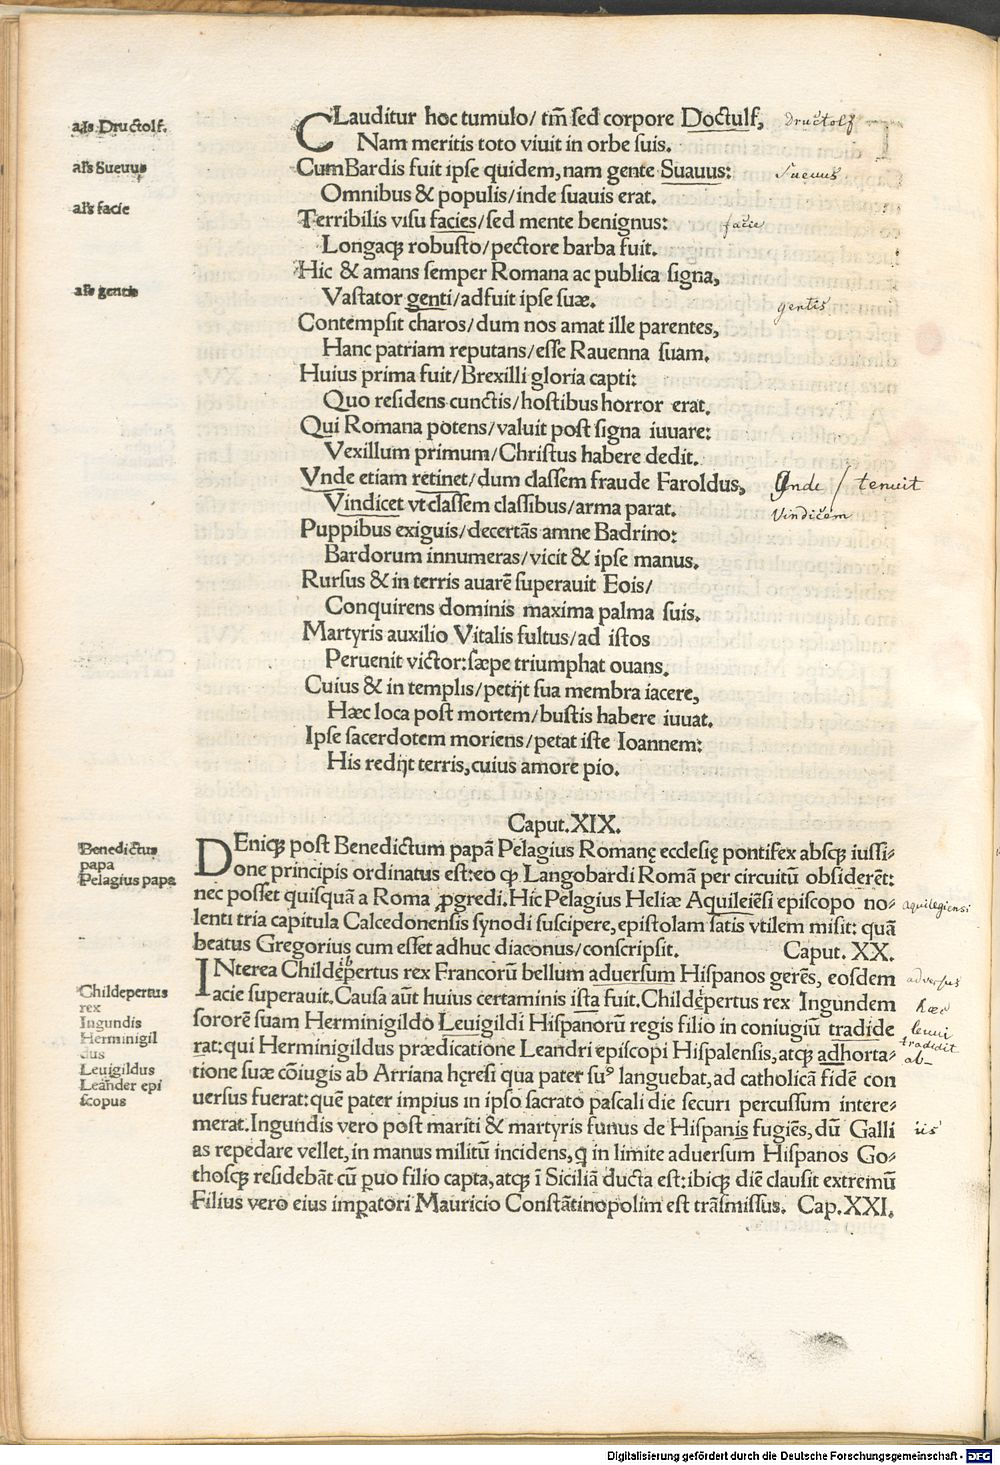 CLauditur hoc tumulo/ tm̄ sed corpore Doctulf,
Nam meritis toto viuit in orbe suis.
CumBardis fuit ipse quidem, nam gente Suauus:
Omnibus & populis/inde suauis erat.
Terribilis visu facies/sed mente benignus:
Longaqꝫ robusto/pectore barba fuit.
Hic & amans semper Romana ac publica signa,
Vastator genti/adfuit ipse suæ.
Contempsit charos/dum nos amat ille parentes,
Hanc patriam reputans/esse Rauenna suam.
Huius prima fuit/Brexilli gloria capti:
Quo residens cunctis/hostibus horror erat.
Qui Romana potens/valuit post signa iuuare:
Vexillum primum/Christus habere dedit.
Vnde etiam retinet/dum classem fraude Faroldus,
Vindicet vt classem classibus/arma parat.
Puppibus exiguis/decertãs amne Badrino:
Bardorum innumeras/vicit & ipse manus.
Rursus & in terris auarẽ superauit Eois/
Conquirens dominis maxima palma suis.
Martyris auxilio Vitalis fultus/ad istos
Peruenit victor: sæpe triumphat ouans.
Cuius & in templis/petijt sua membra iacere,
Hæc loca post mortem/bustis habere iuuat.
Ipse sacerdotem moriens/petat iste Ioannem:
His redijt terris, cuius amore pio.
als Dructolf.
als Sueuus
als facie
als gentis
dructolf
Sueuus
facie
gentis
Unde / tenuit
Vindicem
Caput.XIX.
DEniqꝫ post Benedictum papã Pelagius Romanę ecclesię pontifex absqꝫ iussi-
one principis ordinatus est: eo ꝙ Langobardi Romã per circuitũ obsiderẽt:
nec posset quisquã a Roma ꝓgredi. Hic Pelagius Heliæ Aquileiẽsi episcopo no-
lenti tria capitula Calcedonensis synodi suscipere, epistolam satis vtilem misit: quã
beatus Gregorius cum esset adhuc diaconus/conscripsit. Caput. XX.
INterea Childepertus rex Francorũ bellum aduersum Hispanos gerẽs, eosdem
acie superauit. Causa aũt huius certaminis ista fuit. Childepertus rex Ingundem
sororẽ suam Herminigildo Leuigildi Hispanorũ regis filio in coniugiũ tradide
rat: qui Herminigildus prædicatione Leandri episcopi Hispalensis, atqꝫ adhorta-
tione suæ cõiugis ab Arriana hęresi qua pater suꝰ languebat, ad catholicã fidẽ con
uersus fuerat: quẽ pater impius in ipso sacrato pascali die securi percussum intere-
merat. Ingundis vero post mariti & martyris funus de Hispanis fugiẽs, dũ Galli
as repedare vellet, in manus militũ incidens, ꝗ in limite aduersum Hispanos Go-
thosqꝫ residebãt cũ ꝑuo filio capta, atqꝫ ĩ Siciliã ducta est: ibiqꝫ diẽ clausit extremũ
Filius vero eius imꝑatori Mauricio Constãtinopolim est trãsmissus. Cap.XXI.
Benedictus
papa
Pelagius papa
Childepertus
rex
Ingundis
Herminigil
dus
Leuigildus
Leãder epi
scopus
aquilegiensi
adversus
hæc
leuui
tradidit
ab-
iis
Digitalisierung gefördert durch die Deutsche Forschungsgemeinschaft - DFG